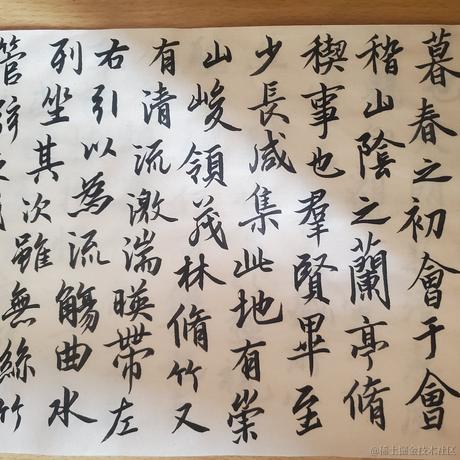 暮春之初會于會
稽山陰之蘭亭脩
稧事也羣賢畢至
少長咸集此地有崇
山峻領茂林脩竹又
有清流激湍暎帶左
右引以為流觴曲水
列坐其次雖無絲竹
管弦之
@稀土掘金技术社区